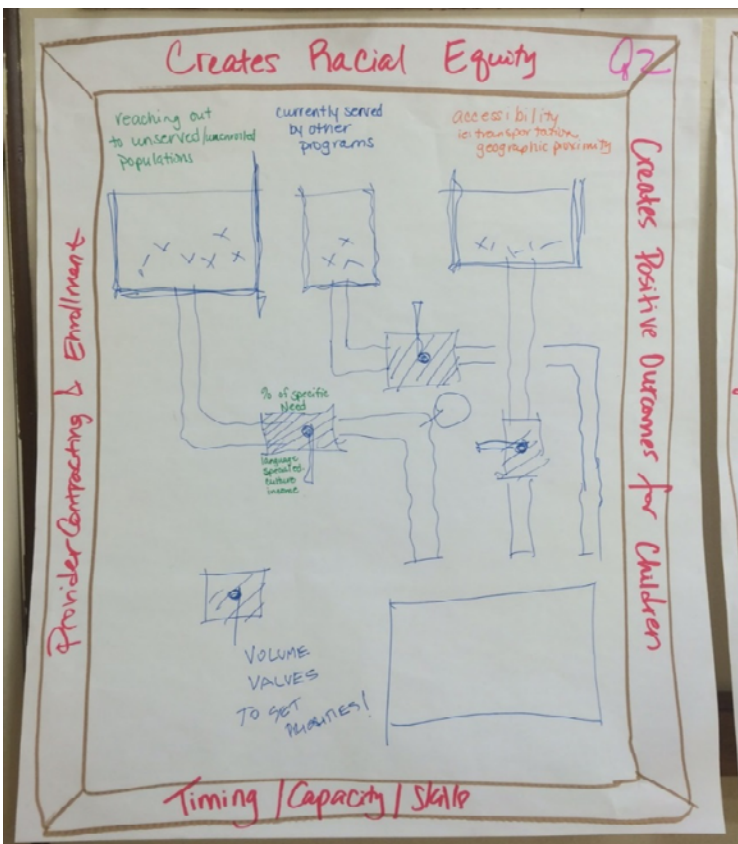 Creates Racial Equity
Q2
reaching out
to unserved/unenrolled
populations
currently served
by other
programs
accessibility
ie: transportation,
geographic proximity
Provider Contracting & Enrollment
Creates Positive Outcomes for Children
% of specific
Need
language
special ed.
culture
income
VOLUME
VALVES
TO SET
PRIORITIES!
Timing / Capacity / Skills